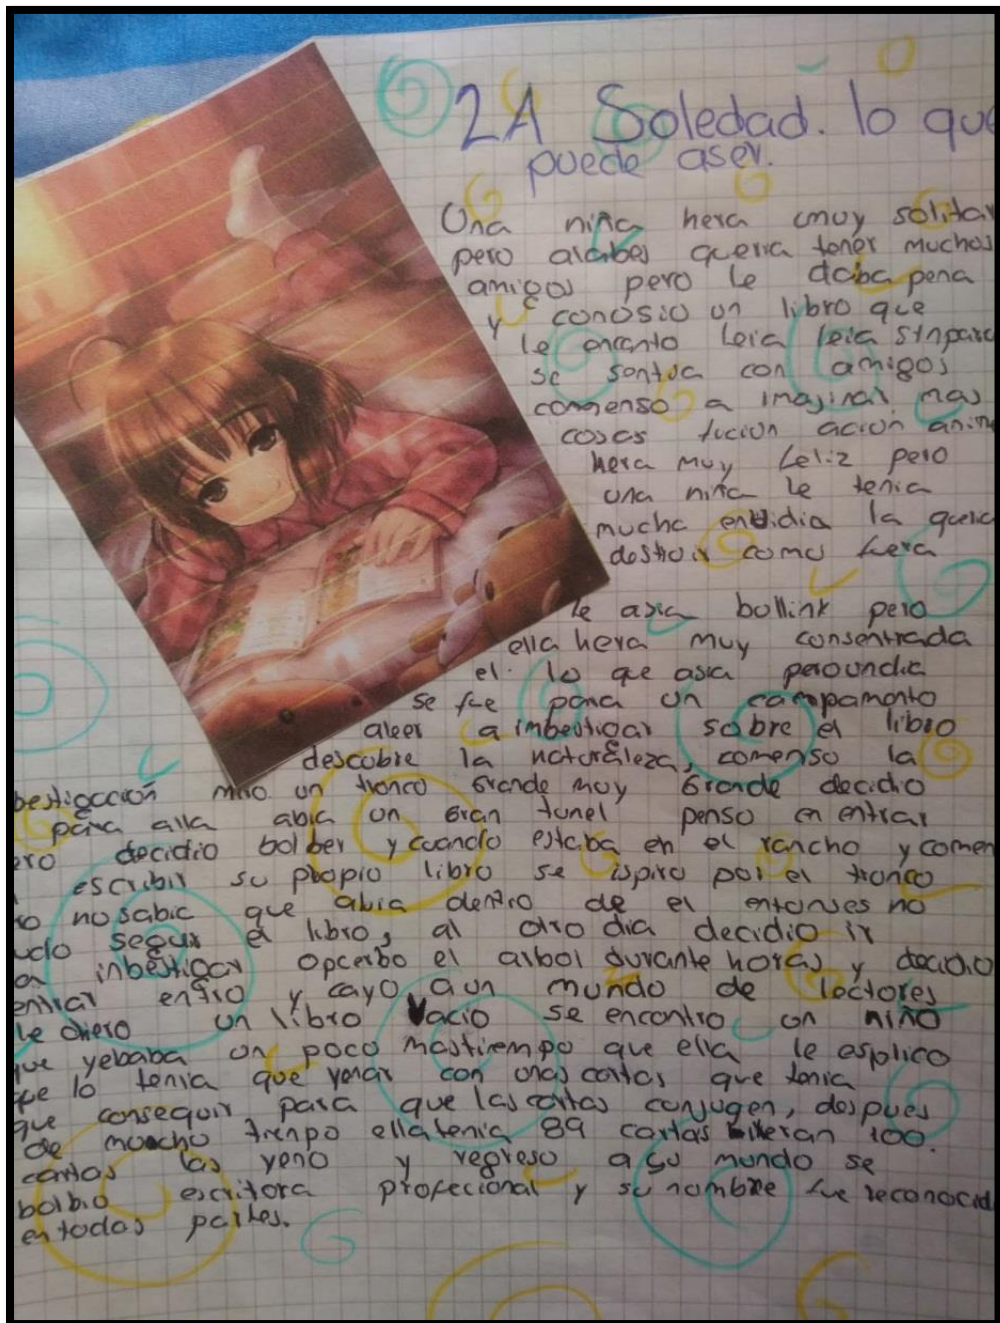 2A Soledad. lo que
puede aser.
Una niña hera muy solitar
pero alabes queria tener muchos
amigos pero le daba pena
y conosio un libro que
le encanto leia leia sinpara
se sentia con amigos
comenso a imajinar mas
cosas ficion acion anim
hera muy feliz pero
una niña le tenia
mucha envidia la queria
destroir como fuera
le asia bollink pero
ella hera muy consentrada
el lo que asia peroundia
se fue para un campamento
aleer a imbestigar sobre el libro
descubre la naturaleza, comenso la
bestigacción miro un tronco Grande muy Grande decidio
para alla abia un Gran tunel penso en entrar
ero decidio bolber y cuando estaba en el rancho y comen
escribir su propio libro se ispiro por el tronco
ro no sabia que abia dentro de el entonses no
udo seguir el libro, al otro dia decidio ir
a inbestigar opcerbo el arbol durante horas y decidio
entrar entro y cayo aun mundo de lectores
le diero un libro vacio se encontro un niño
que yebaba un poco mastiempo que ella le esplico
que lo tenia que yenar con unas cartas que tenia
que conseguir, para que las cartas conjugen, despues
de mucho tienpo ellatenia 89 cartas eran 100
cartas las yeno y regreso a su mundo se
bolbio escritora profecional y su nombre fue reconocid
en todas partes.